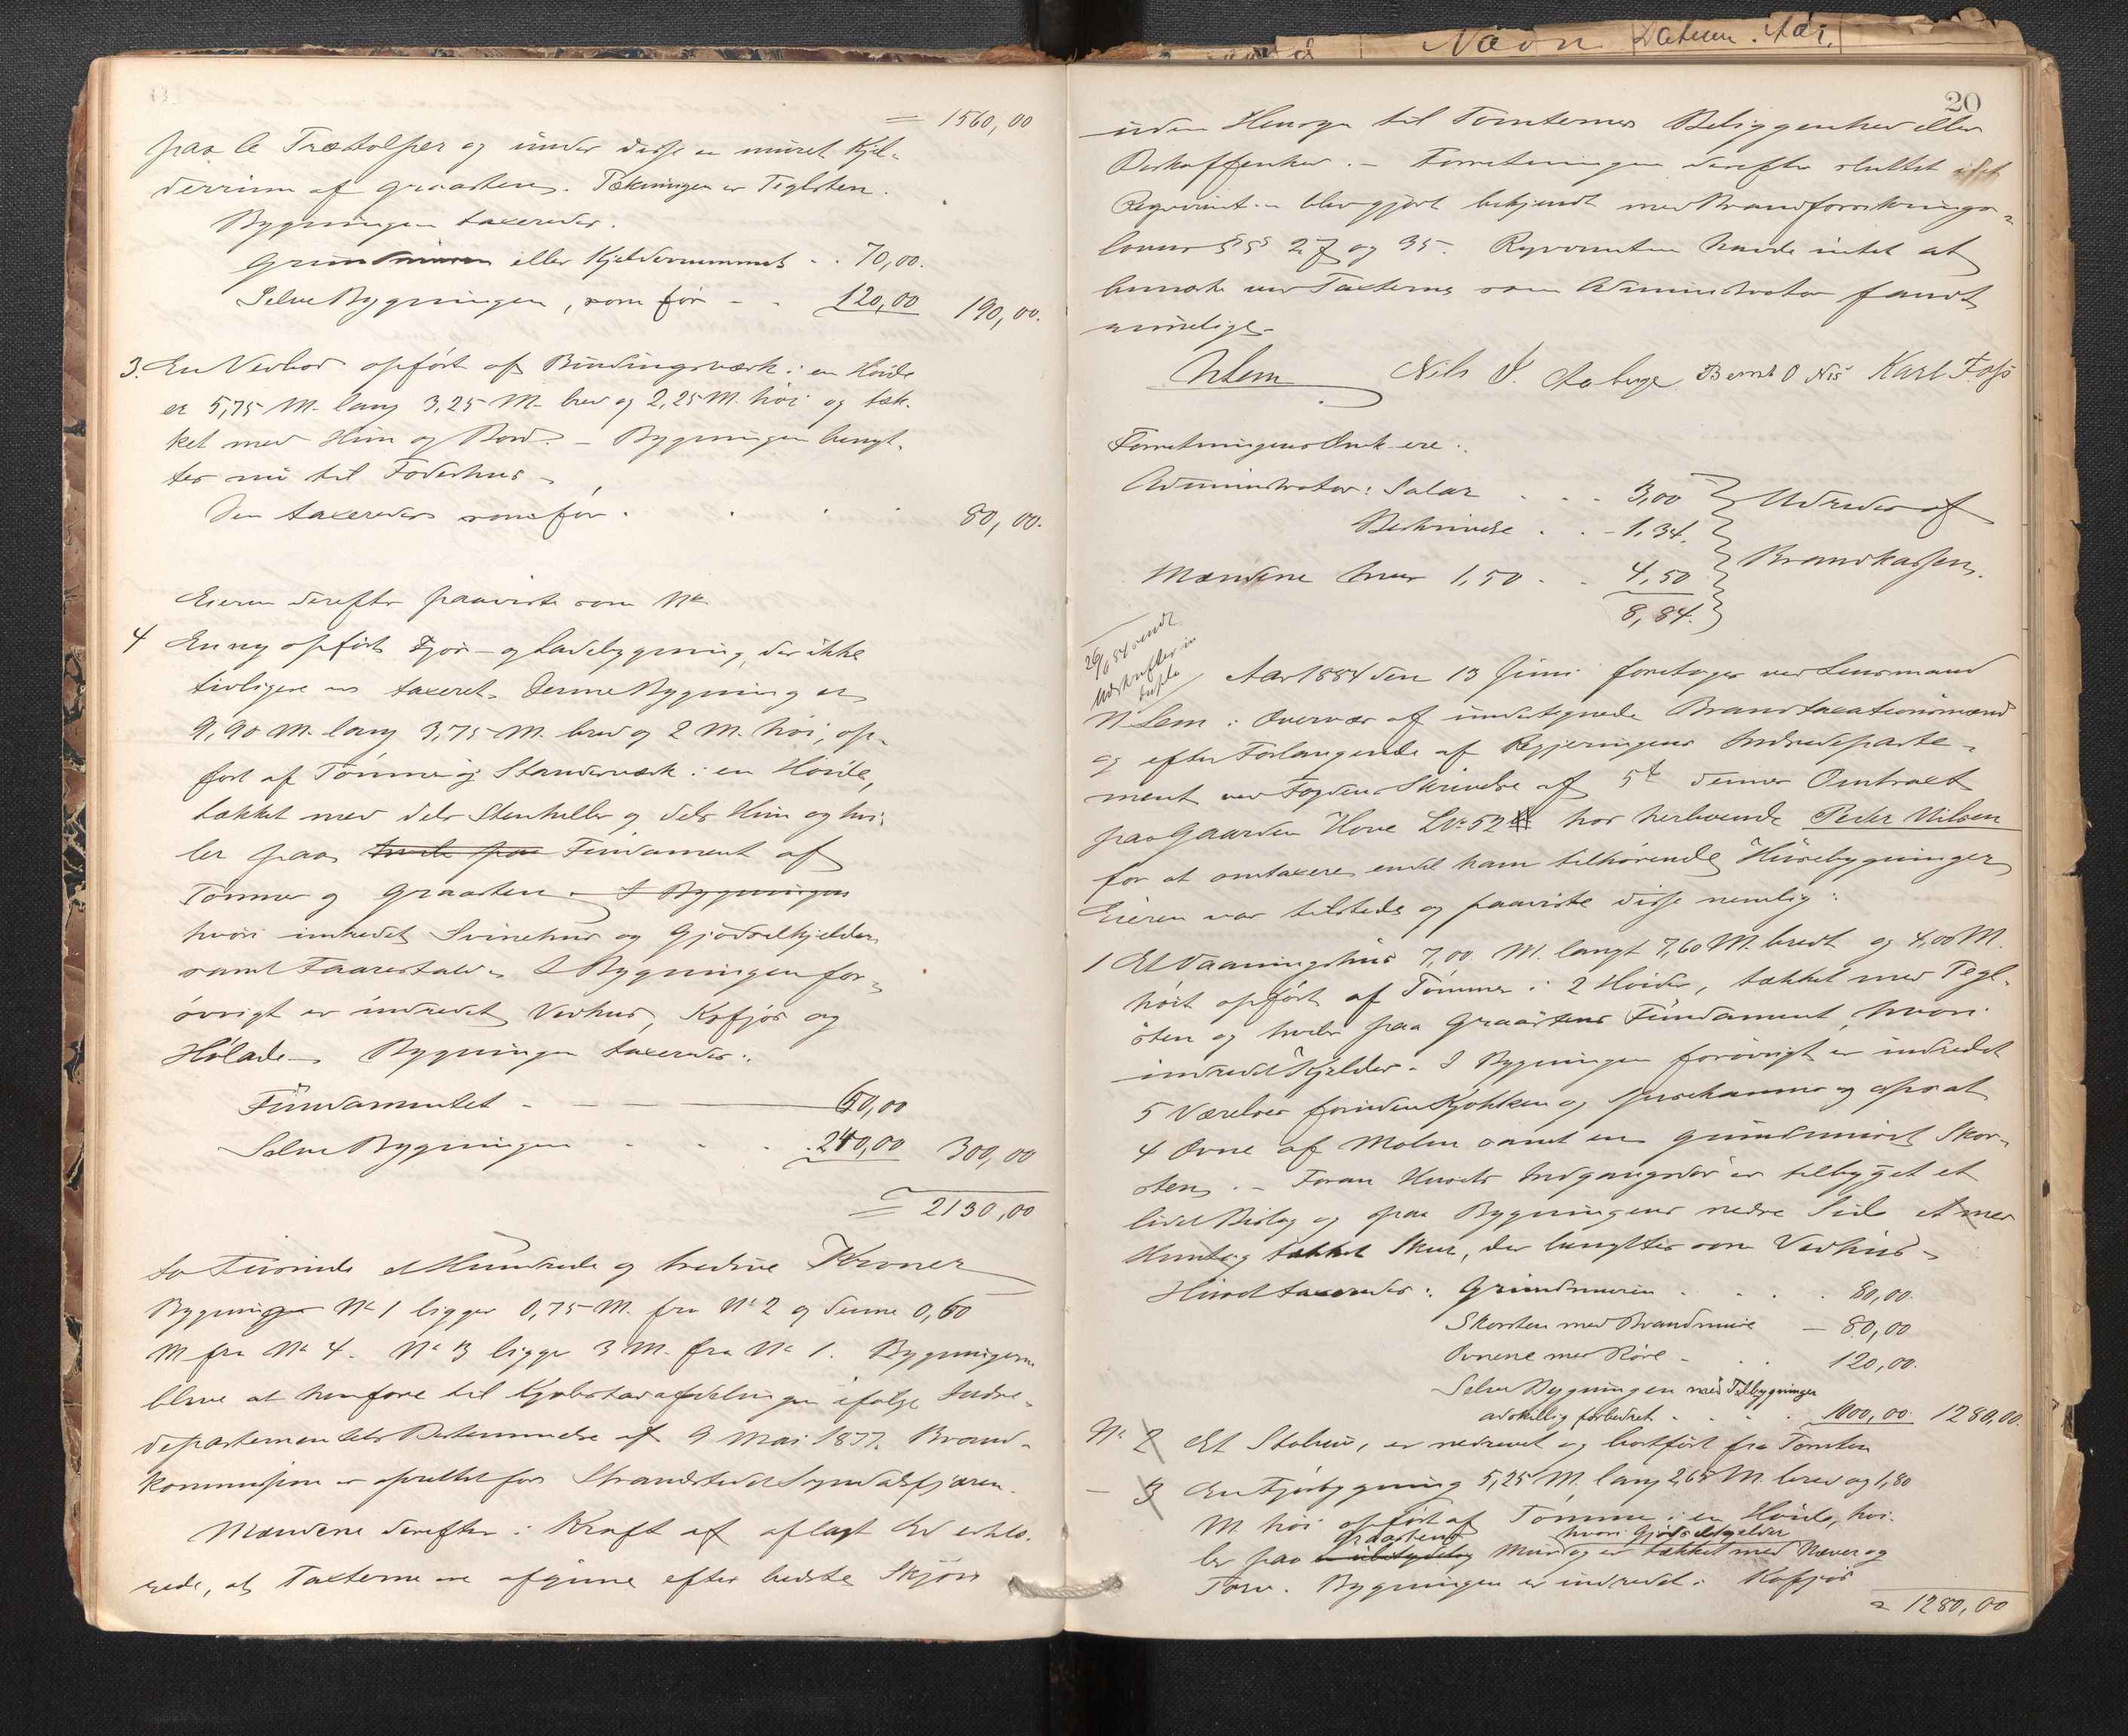 = 1560,00
paa 6 Træstolper og under disse er muret Kjel-
derrum af Graasten. Tækningen er Teglsten.
Bygningen taxeredes.
Grundmuren eller Kjelderrummet . . 70,00.
Selve Bygningen, som før - - 120,00 190,00.
3. En Vedbod opført af Bindingsværk i en Høide
er 5,75 M. lang 3,25 M. bred og 2,25 M. høi og tæk-
ket med Him og Bord. - Bygningen benyt-
tes nu til Foderhus -
Den taxeredes som før . . . . 80,00.
Eieren derefter paaviste som No
4 En ny opført Fjøs- og Ladebygning, der ikke
tidligere er taxeret. Denne Bygning er
9,90 M. lang 3,75 M. bred og 2 M. høi, op-
ført af Tømmer og Standerværk i en Høide,
tækket med dels Stenheller og dels Him og hvi-
ler paa hvile paa Fundament af
Tømmer og Graasten. I Bygningen
hvori indredet Svinehus og Gjødselkjelder
samt Faarestald. I Bygningen for-
øvrigt er indredet Vedhus, Kofjøs og
Høladen. Bygningen taxeredes:
Fundamentet - 60,00
Selve Bygningen . . . 240,00 300,00
= 2130,00
to Tusinde et Hundrede og tredive Kroner
Bygningen No 1 ligger 0,75 M. fra No 2 og denne 0,60
M fra No 4. No 3 ligger 3 M. fra No 1. Bygningerne
blive at henføre til Kjøbstadafdelingen ifølge Indre-
departementets Bestemmelse af 9 Mai 1877. Brand-
kommission er oprettet for Strandstedet Sogndalsfjæren.
Mændene derefter i Kraft af aflagt Ed erklæ-
rede, at Taxterne ere afgivne efter bedste Skjøn
20
uden Hensyn til Tomternes Beliggenhed eller
Beskaffenhed. - Forretningen derefter sluttet idet
Reqvirenten blev gjort bekjendt med Brandforsikrings-
lovens §§ 27 og 35. Reqvirenten havde intet at
bemærke ved Taxterne som Administrator fandt
rimelige.
NLem Nils J. Aaberge Bernt O Nes Karl Foss
Forretningens Omk. ere:
Administrator: Salær . . . 3,00 Udredes af
Beskrivelse . . - 1,34.
Mændene hver 1,50 . . 4,50 Brandkassen.
8,84.
26/6 84 sendt
Udskrifter in
duplo
Aar 1884 den 13 Juni foretoges ved Lensmand
N Lem i Overvær af undertegnede Brandtaxationsmænd
og efter Forlangende af Regjeringens Indredeparte-
ment ved Fogdens Skrivelse af 5te dennes Omtaxt
paa Gaarden Hove LNo 52 hos herboende Peder Nilsen
for at omtaxere endel ham tilhørende Husebygninger
Eieren var tilstede og paaviste disse nemlig:
1 Et Vaaningshus 7,00 M. langt 7,60 M. bredt og 4,00 M.
høit opført af Tømmer i 2 Høider, tækket med Tegl-
sten og hviler paa Graastens Fundament, hvori
indredet Kjelder. I Bygningen forøvrigt er indredet
5 Værelser foruden Kjøkken og Spisekammer og opsat
4 Ovne af Malm samt en grundmuret Skor-
sten. - Foran Husets Indgangsdør er tilbygget et
lidet Bislag og paa Bygningens nedre Side et med
Himtag tækket Skur, der benyttes som Vedhus.
Huset taxeredes: Grundmuren . . . . 80,00.
Skorsten med Brandmure - 80,00
Ovnene med Rør - . . 120,00.
Selve Bygningen med Tilbygninger
adskillig forbedret . . . . 1000,00. 1280,00.
No 2 Et Stabur, er nedrevet og bortført fra Tomten
- 3 En Fjøsbygning 5,25 M. lang 2,65 M. bred og 1,80
M. høi opført af Tømmer i en Høide, hvi-
Graastens hvori Gjødselkjelder
ler paa en ubetydelig Mur og er tækket med Næver og
Torv. Bygningen er indredet i Kofjøs
= 1280,00